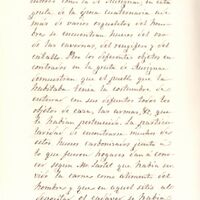 meros como la de Aurignac. En esta
gruta de la época cuaternaria ade-
más de varios esqueletos del hom-
bre se encuentran huesos del oso
de las cavernas, del rengífero y del
caballo. Por los diferentes objetos en-
contrados en la gruta de Aurignac
demuestran que el pueblo que la
habitaba tenía la costumbre de
enterrar con sus difuntos todos los
objetos de caza, las armas, &c. que
le habían pertenecido. La particu-
laridad de encontrarse muchos de
estos huesos carbonizados junto a
lo que fueron hogares dan a cono-
cer segun Mr. Lartet que habia ser-
vido la carne como alimento del
hombre, y que en aquel sitio al
depositar el cadáver se habia